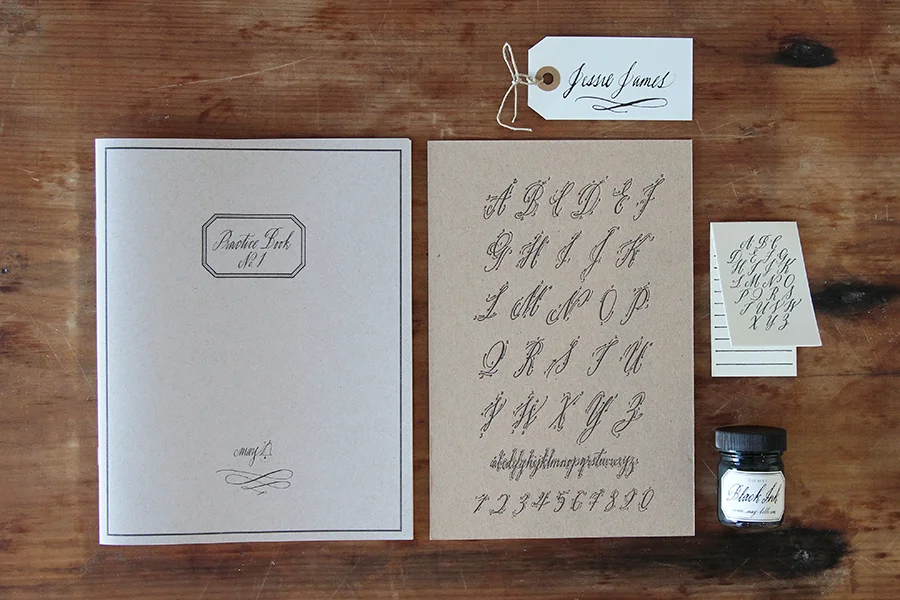 Jessie James
Practice Book
No. 1
may
A B C D E F
G H I J K
L M N O P
Q R S T U
V W X Y Z
abcdefghijklmnopqrstuvwxyz
1 2 3 4 5 6 7 8 9 0
A B C
D E F G
H I J K
L M N O
P Q R S
T U V W
X Y Z
Black Ink